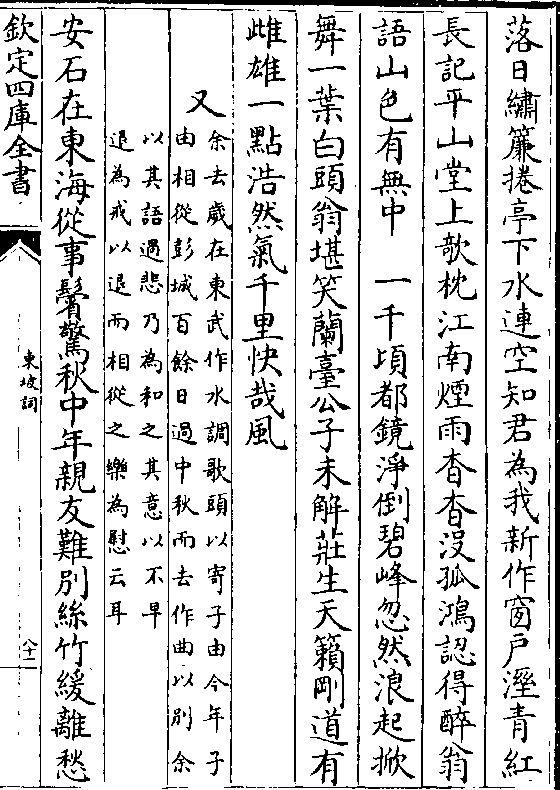 落日繡簾捲亭下水連空知君為我新作窗戶溼青紅
長記平山堂上欹枕江南煙雨杳杳沒孤鴻認得醉翁
語山色有無中　一千頃都鏡淨倒碧峰忽然浪起掀
舞一葉白頭翁堪笑蘭臺公子未解莊生天籟剛道有
雌雄一點浩然氣千里快哉風
又
余去歲在東武作水調歌頭以寄子由今年子
由相從彭城百餘日過中秋而去作曲以別余
以其語過悲乃為和之其意以不早
退為戒以退而相從之樂為慰云耳
安石在東海從事鬢驚秋中年親友難別絲竹緩離愁
欽定四庫全書
東坡詞
八十一